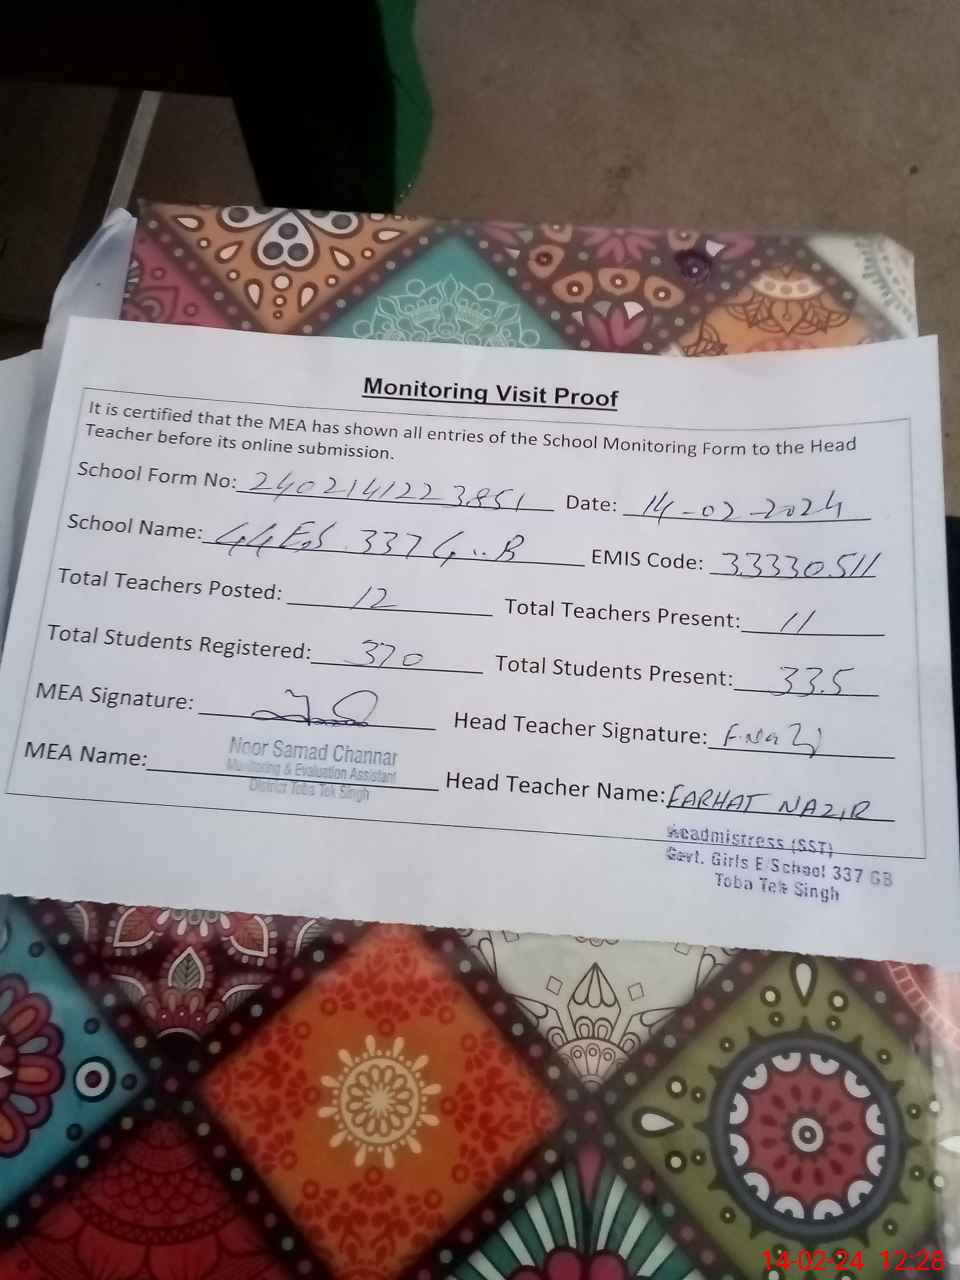 Monitoring Visit Proof
It is certified that the MEA has shown all entries of the School Monitoring Form to the Head
Teacher before its online submission.
School Form No: 2402141223851 Date: 14-02-2024
School Name: GGES 337 G..B EMIS Code: 33330511
Total Teachers Posted: 12 Total Teachers Present: 11
Total Students Registered: 370 Total Students Present: 335
MEA Signature: Head Teacher Signature:
MEA Name: Noor Samad Channar
Monitoring & Evaluation Assistant
District Toba Tek Singh
Head Teacher Name: FARHAT NAZIR
Headmistress (SST)
Govt. Girls E/School 337 GB
Toba Tek Singh
14-02-24 12:28